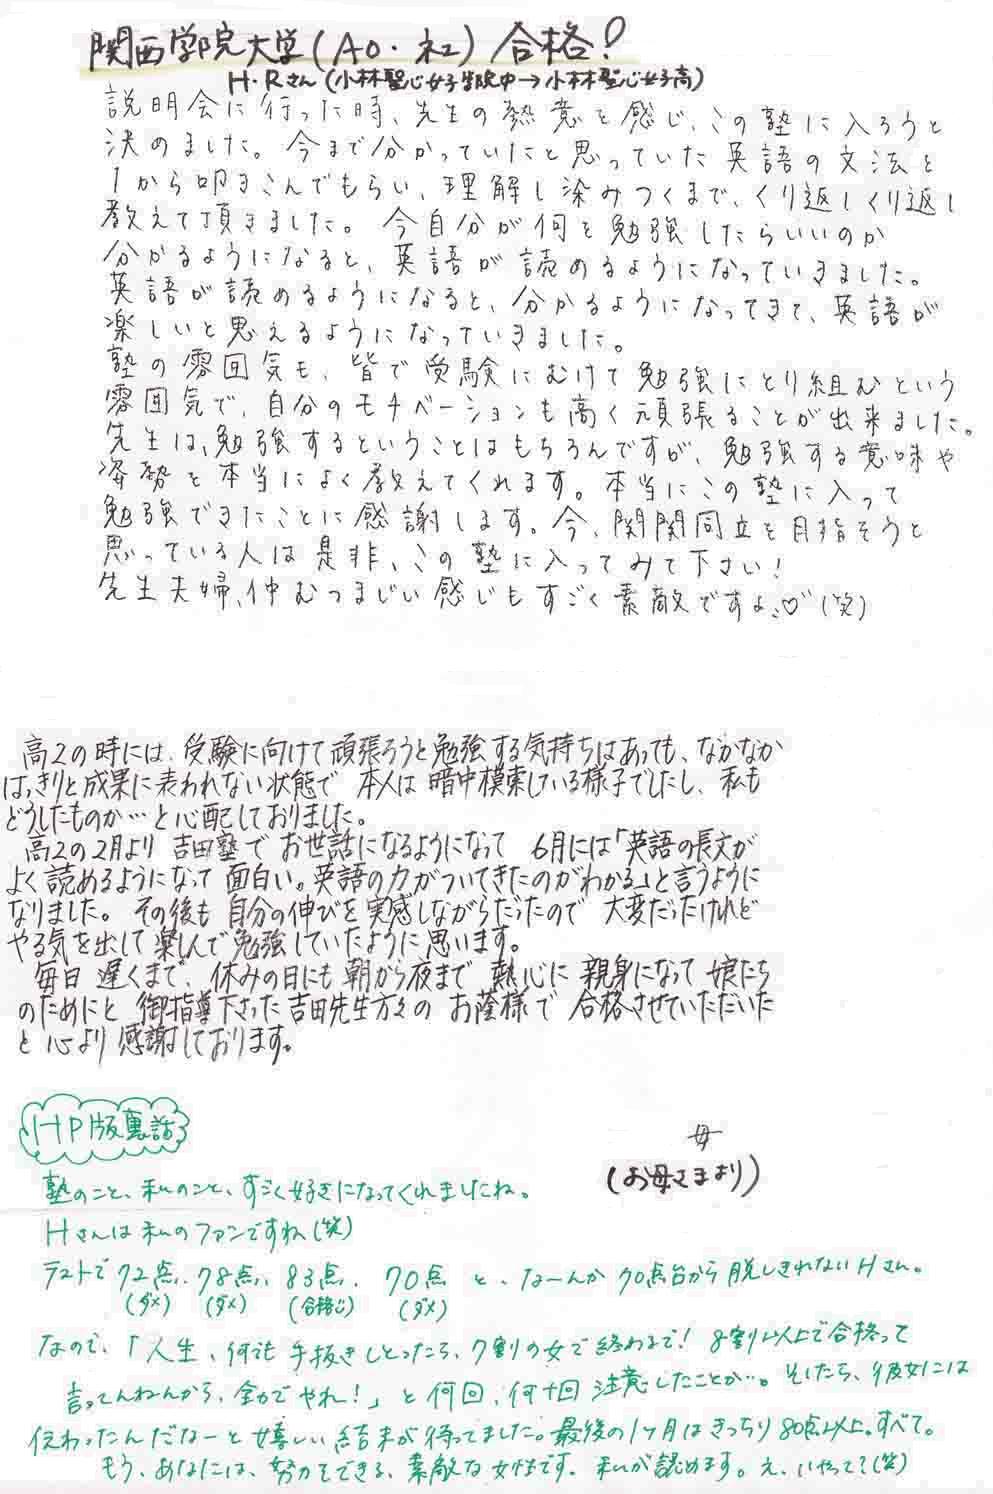 関西学院大学(AO・社)合格!
H・Rさん(小林聖心女子学院中→小林聖心女子高)
説明会に行った時、先生の熱意を感じ、この塾に入ろうと
決めました。今まで分かっていたと思っていた英語の文法を
1から叩きこんでもらい、理解し染みつくまで、くり返しくり返し
教えて頂きました。今自分が何を勉強したらいいのか
分かるようになると、英語が読めるようになっていきました。
英語が読めるようになると、分かるようになってきて、英語が
楽しいと思えるようになっていきました。
塾の雰囲気も、皆で受験にむけて勉強にとり組むという
雰囲気で、自分のモチベーションも高く頑張ることが出来ました。
先生は、勉強するということはもちろんですが、勉強する意味や
姿勢を本当によく教えてくれます。本当にこの塾に入って
勉強できたことに感謝します。今、関関同立を目指そうと
思っている人は是非、この塾に入ってみて下さい!
先生夫婦、仲むつまじい感じもすごく素敵ですよ♡(笑)
高2の時には、受験に向けて頑張ろうと勉強する気持ちはあっても、なかなか
はっきりと成果に表われない状態で 本人は暗中模索している様子でしたし、私も
どうしたものか…と心配しておりました。
高2の2月より 吉田塾で お世話になるようになって 6月には「英語の長文が
よく読めるようになって面白い。英語の力がついてきたのがわかる」と言うように
なりました。その後も 自分の伸びを実感しながらだったので 大変だったけれど
やる気を出して楽しんで勉強していたように思います。
毎日 遅くまで、休みの日にも朝から夜まで 熱心に 親身になって 娘たち
のためにと 御指導下さった 吉田先生方々の お蔭様で 合格させていただいた
と 心より感謝しております。
母
(お母さまより)
HP版裏話
塾のこと、私のこと、すごく好きになってくれましたね。
Hさんは私のファンですね(笑)
テストで72点、78点、83点、70点 と、なーんか70点台から脱しきれないHさん。
(ダメ) (ダメ) (合格♡) (ダメ)
なので、「人生、何でも手抜きしとったら、7割の女で終わるで!8割以上で合格って
言ってんねんから、全力でやれ!」と何回、何十回注意したことか…。そしたら、彼女には
伝わったんだなーと嬉しい結末が待ってました。最後の1ヶ月はきっちり80点以上。すべて。
もう、あなたは、努力をできる、素敵な女性です。私が認めます。え、いやって?(笑)